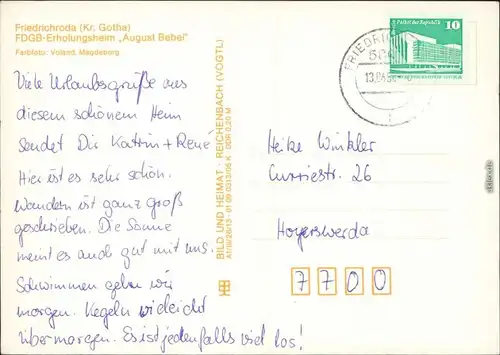 Friedrichroda (Kr. Gotha)
FDGB-Erholungsheim „August Bebel"
Farbfoto: Voland, Magdeburg
Viele Urlaubsgrüße aus
diesem schönem Heim
sendet Dir Kattrin + René
Hier ist es sehr schön.
Wandern ist ganz groß
geschrieben. Die Sonne
meint es auch gut mit uns.
Schwimmen gehn wir
morgen. Kegeln vieleicht
übermorgen. Es ist jedenfalls viel los!
BILD UND HEIMAT REICHENBACH (VOGTL)
A1/III/26/13 01 09 0313/06 K DDR 0,20 M
FRIEDRICH
Palast der Republik
10
Heike Winkler
Curiestr. 26
Hoyerswerda
7700